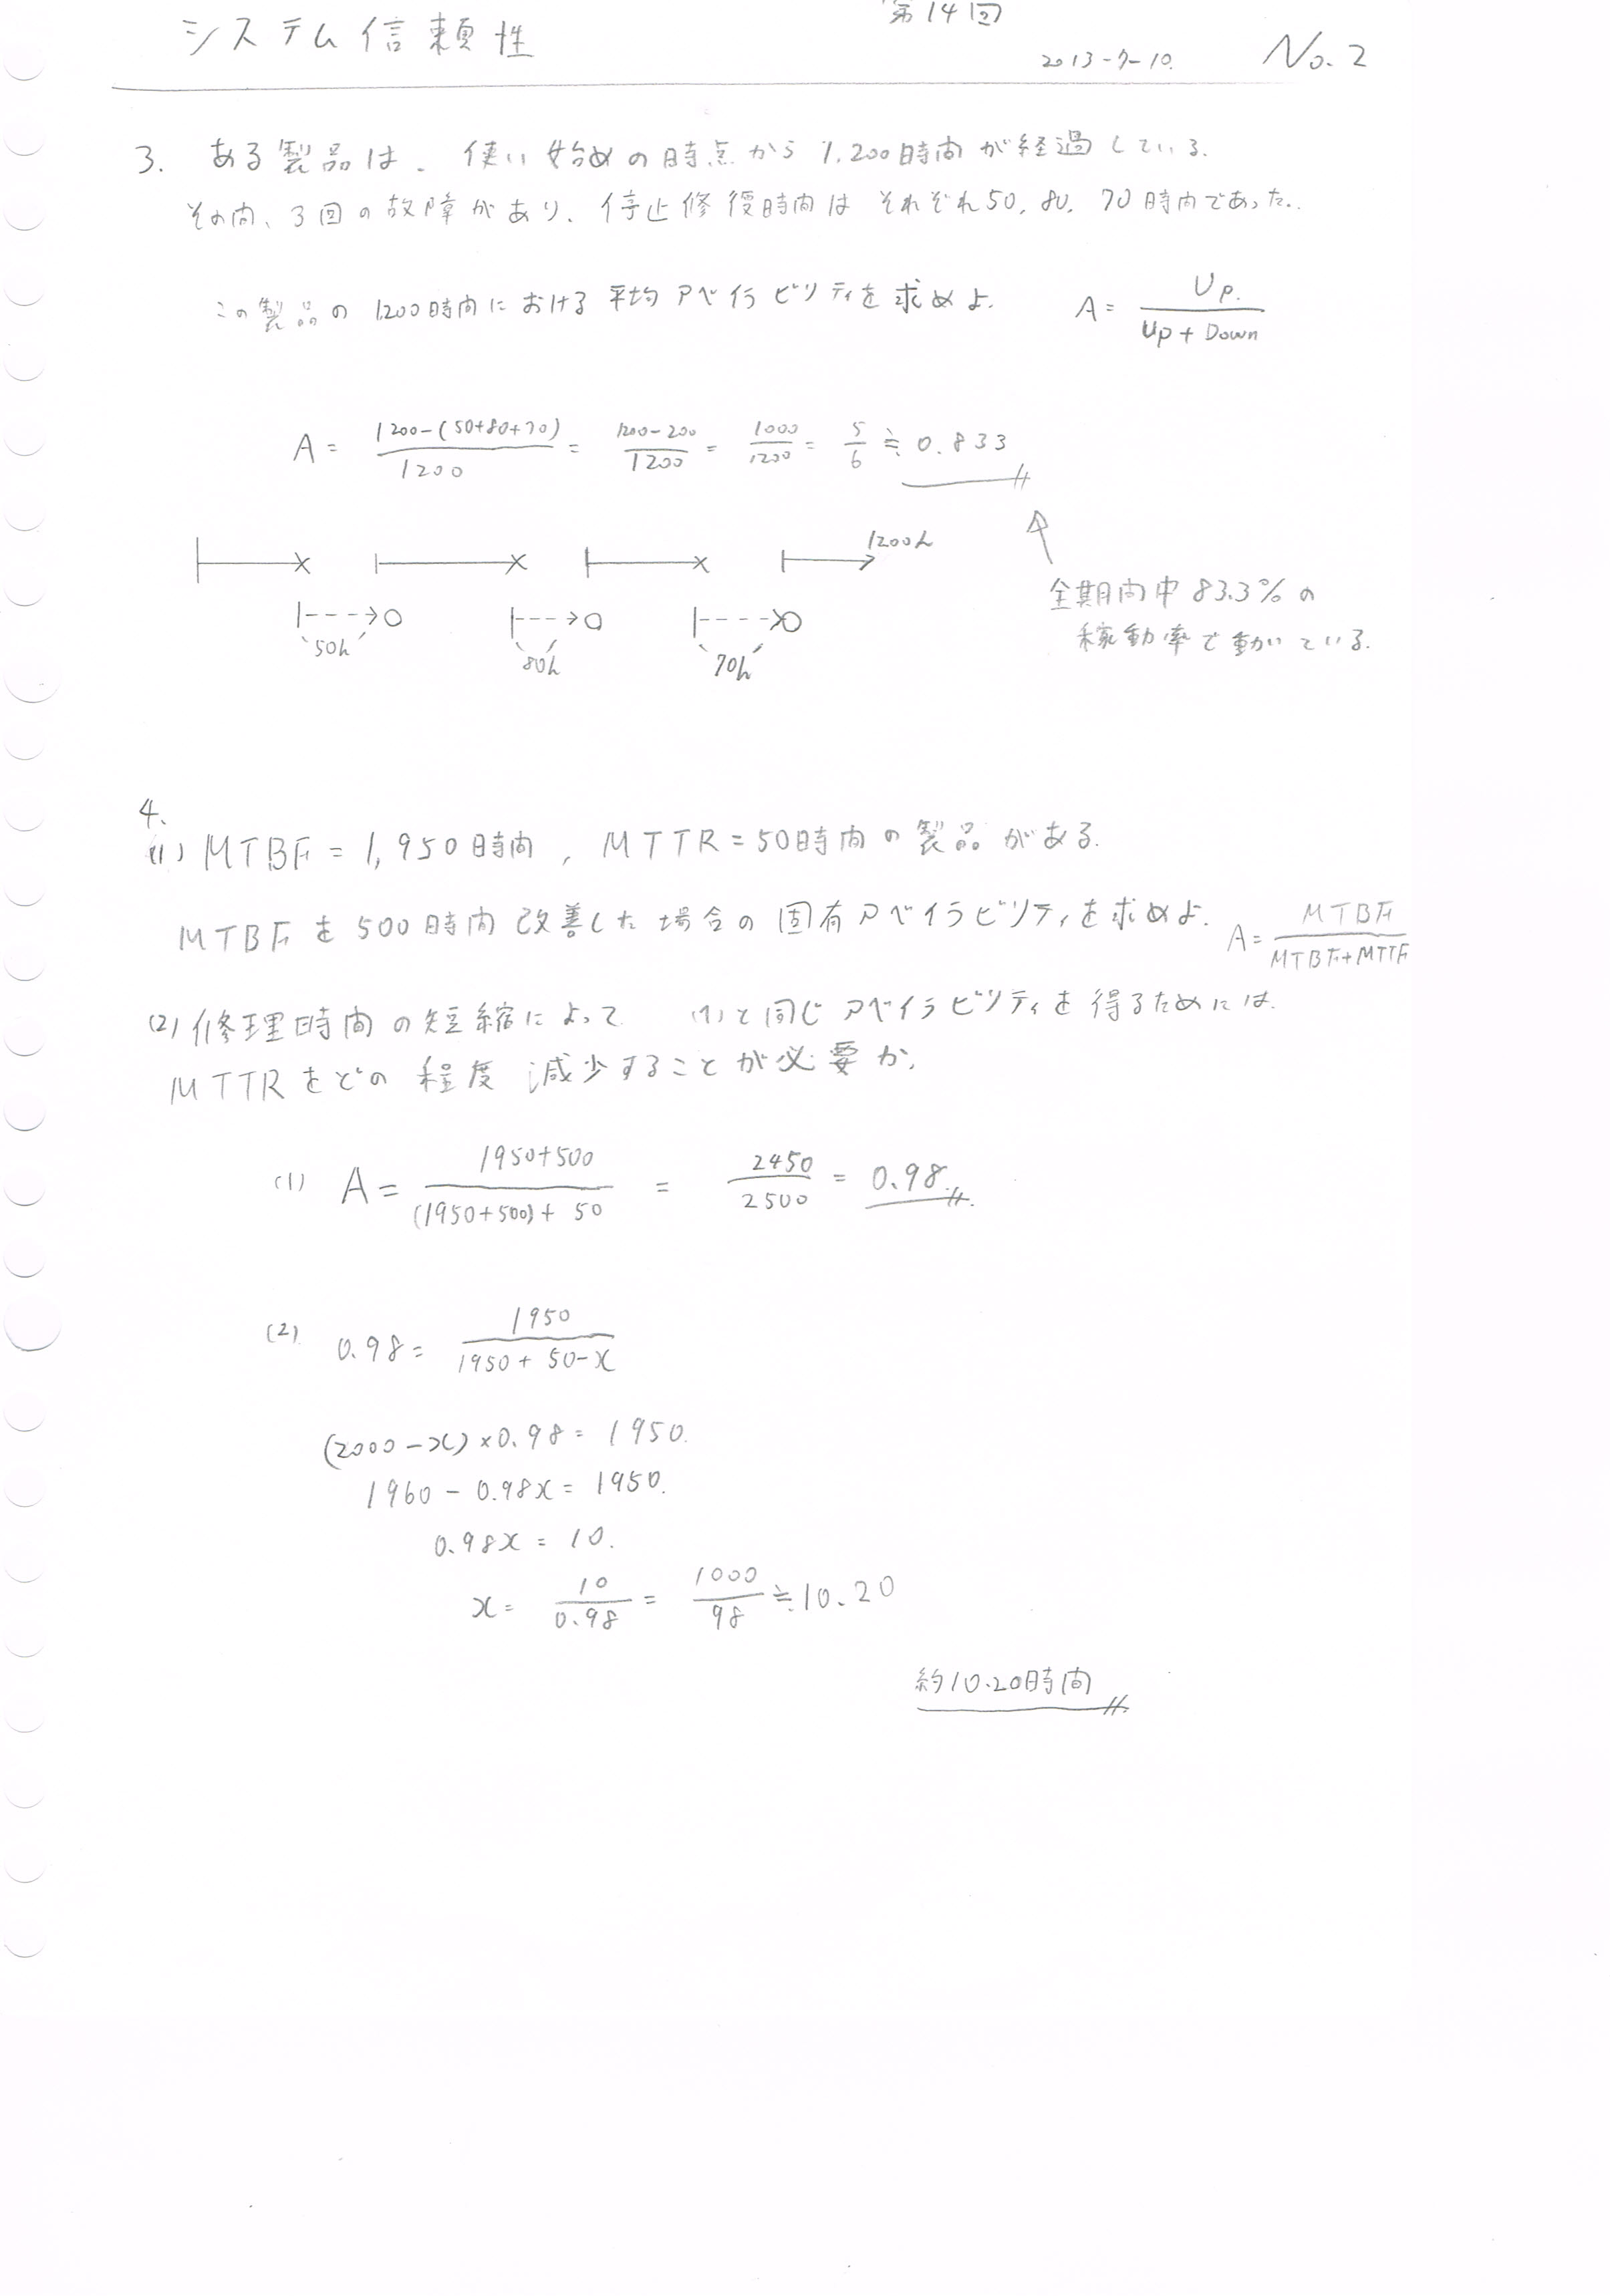 第14回
システム信頼性 2013-7-10. No.2
3. ある製品は、使い始めの時点から1,200時間が経過している.
その間、3回の故障があり、停止修復時間はそれぞれ50, 80, 70時間であった.
この製品の1200時間における平均アベイラビリティを求めよ. A = Up. / Up + Down
A = 1200-(50+80+70) / 1200 = 1200-200 / 1200 = 1000 / 1200 = 5 / 6 ≒ 0.833
1200h
50h 80h 70h
全期間中83.3%の
稼動率で動いている.
4.
(1) MTBF = 1,950時間, MTTR = 50時間の製品がある.
MTBFを500時間改善した場合の固有アベイラビリティを求めよ. A = MTBF / MTBF+MTTF
(2) 修理時間の短縮によって (1)と同じアベイラビリティを得るためには.
MTTRをどの程度減少することが必要か.
(1) A = 1950+500 / (1950+500)+ 50 = 2450 / 2500 = 0.98
(2) 0.98 = 1950 / 1950 + 50-x
(2000-x)×0.98 = 1950.
1960 - 0.98x = 1950.
0.98x = 10.
x = 10 / 0.98 = 1000 / 98 ≒ 10.20
約10.20時間